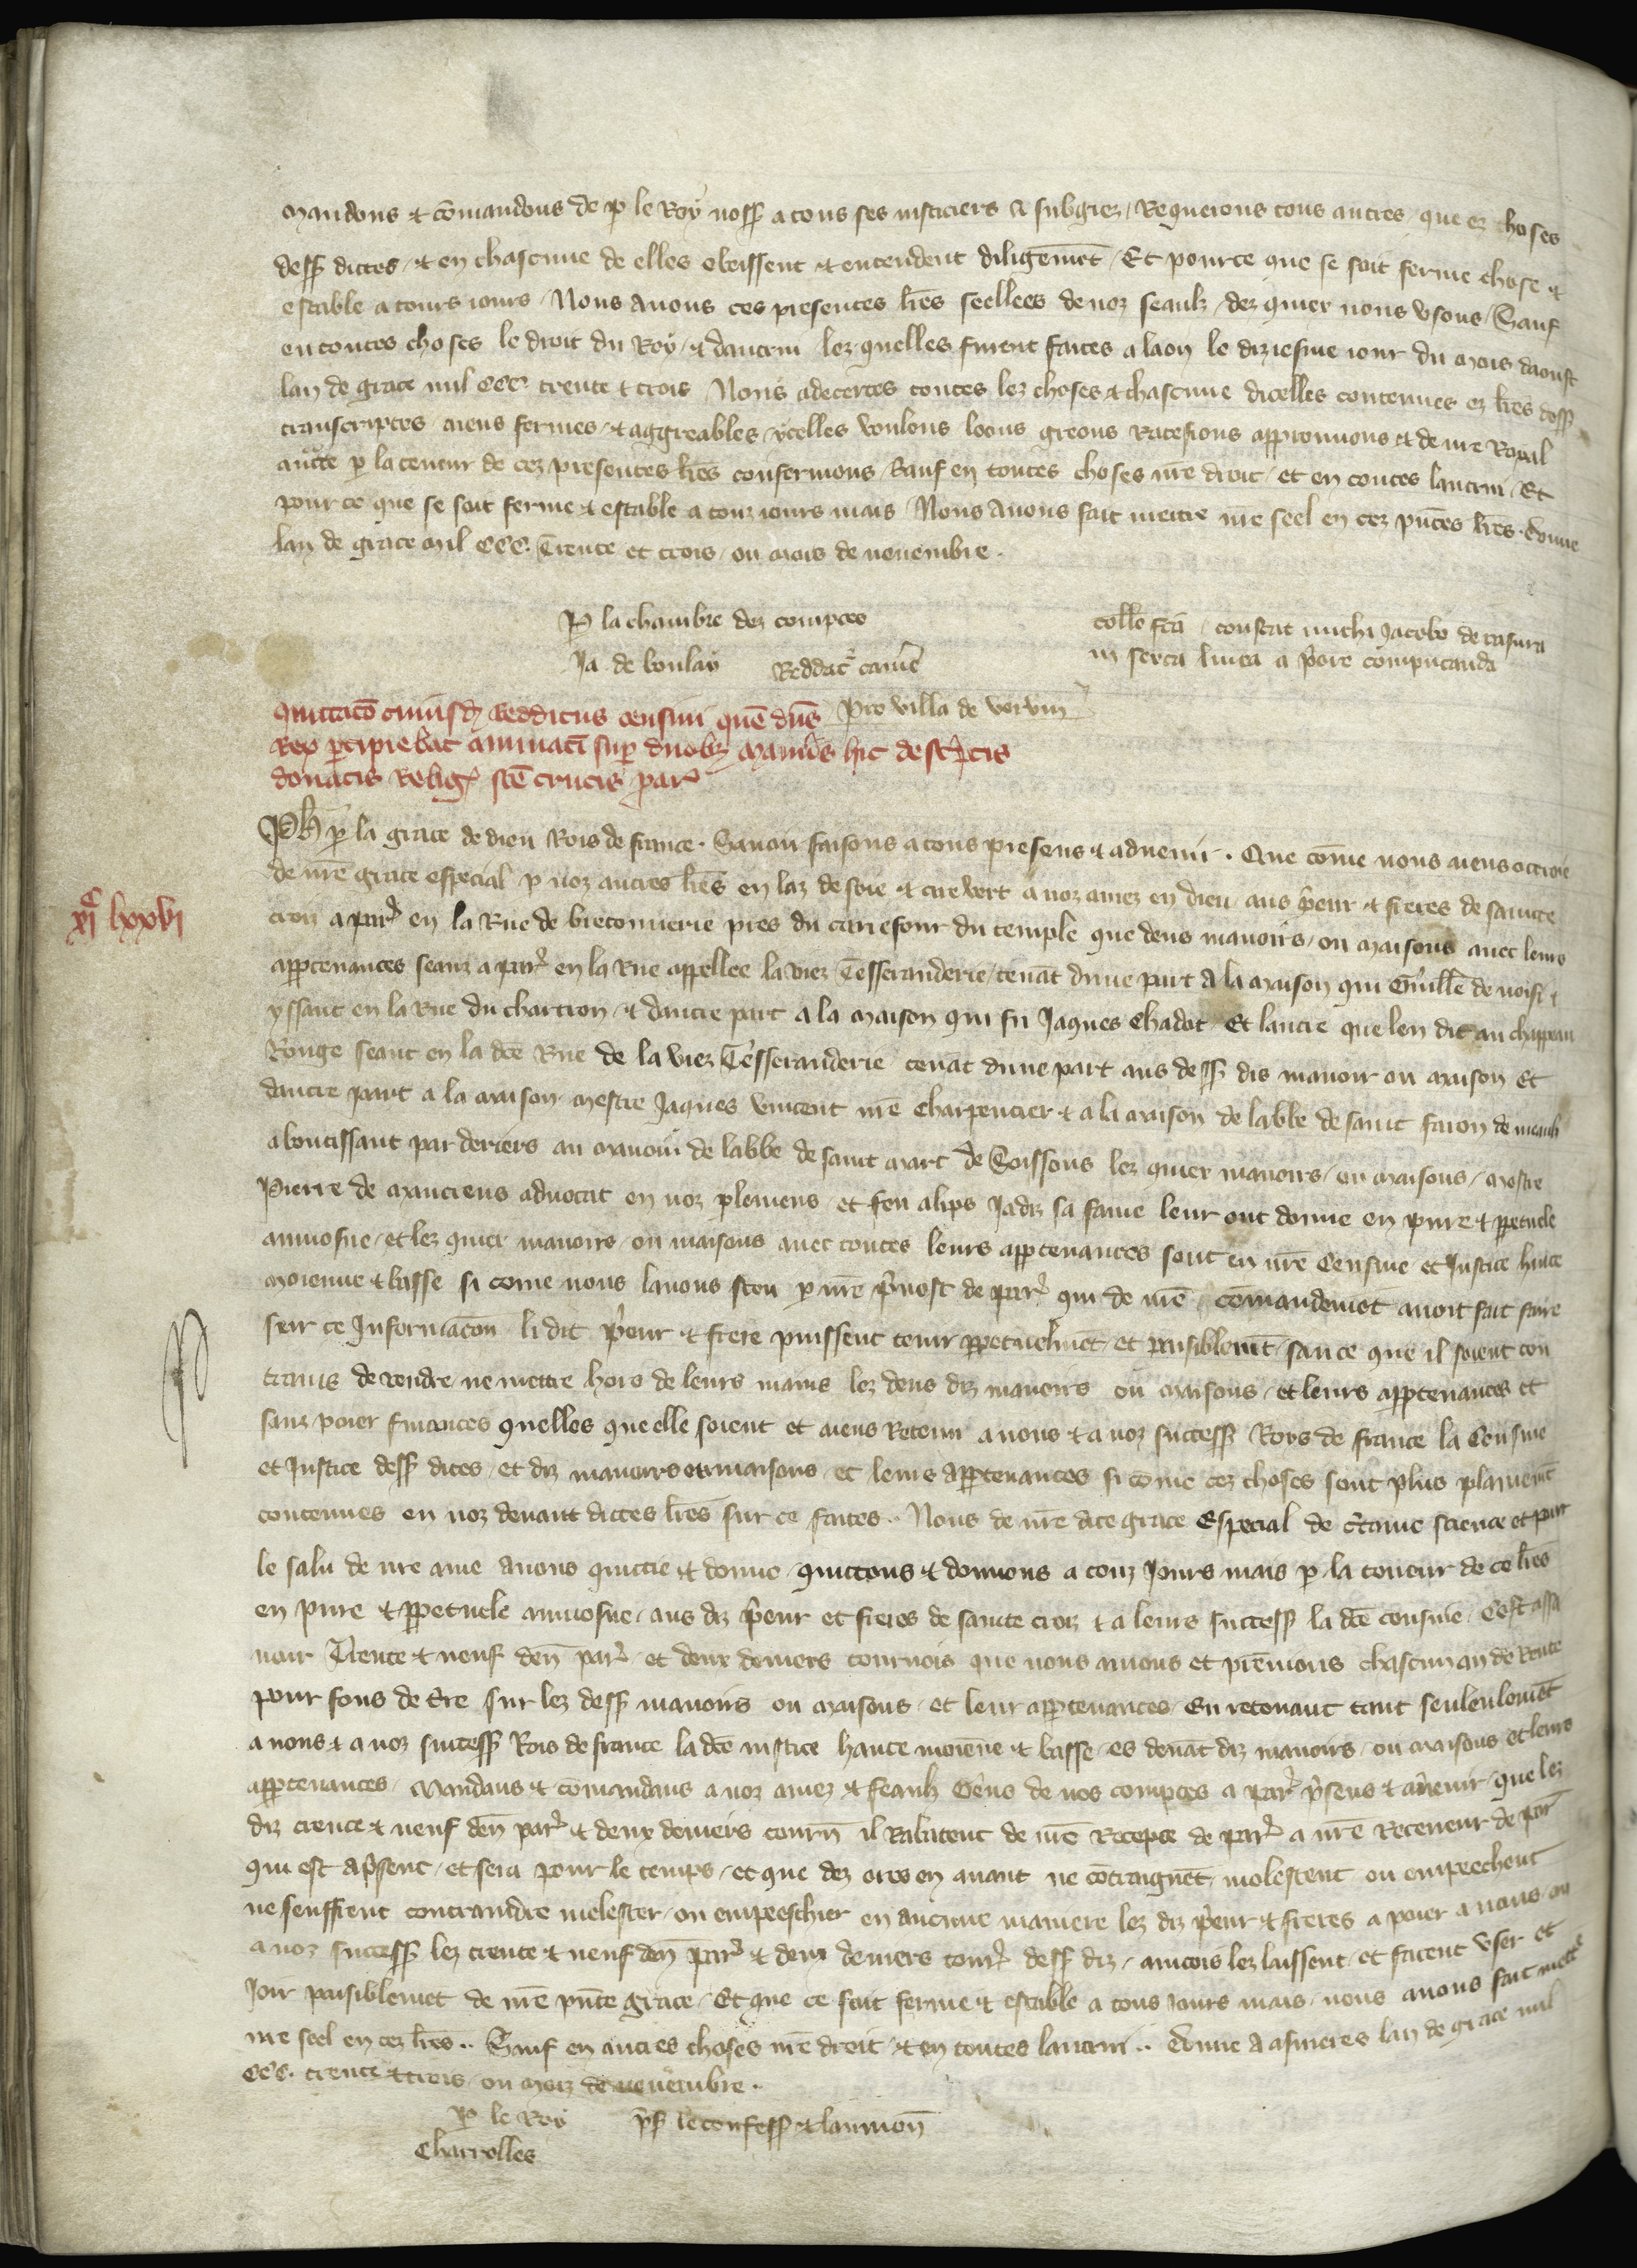 mandons & comandons de p le Roy nosß a tous ses iusticiers & subgiez / Requerons tous autres / que es choses
desß dictes / & en chascune de elles obeissent & entendent diligenmt / Et pource que se soit ferme chose &
estable a tours iours / Nous avons ces presentes lres seellees de noz seaulz / dez quiex nous usons / Sauf
en toutes choses le droit du Roy / & dautrui lez quelles furent faites a laon le diziesme iour du mois daoust
lan de grace mil CCC trente & trois Nous adecertes toutes lez choses & chascune dicelles contenues ez lres desß
transcriptes aiens fermes / & aggreables / ycelles voulons loons greons Ratefions approuuons & de nre Royal
aucte p la teneur de cez presentes lres confermons / Sauf en toutes choses nre droit / et en toutes lautrui / Et
pour ce que se soit ferme & estable a touz iours mais / Nous Avons fait mettre nre seel en cez pntes lres . Donne
lan de grace mil CCC. Trente et trois / ou mois de nouembre .
P la chambre dez comptes
collo fca / constat michi Jacobo de rasura
Ja de boulay Reddat camē
in sexta linea a pore computanda
Quittaco cuiusd Redditus censiui que dns pro villa de vervin
Rex percipiebat annuati sup duobz maneriis hic desc̃ptis
donatis Relig sce crucis par
xi c lxxvi
Ph p la grace de dieu Rois de france . Sauoir faisons a tous presens & aduenir . Que come nous aiens ottroie
de nre grace especial p noz autres lres en laz de soie & cire vert a noz amez en dieu / aus p̃eur & freres de saincte
croiz a par en la Rue de bretonnerie pres du carrefour du temple que deus manoirs / ou maisons avec leurs
apptenances seanz a par en la Rue appellee la viez Tesseranderie / tenãt dune part a la maison qui Guille de noisi &
yssant en la Rue du chartron / & dautre part a la maison qui fu Jaques Chadot Et lautre que len dit au chappeau
Rouge seant en la dce Rue de la viez Tesseranderie tenãt dune part aus desß dis manoir ou maison Et
dautre part a la maison mestre Jaques vincent nre Charpentier & a la maison de labbe de saint faron de meaulz
aboutissant par deriers au manoir de labbe de saint mart de Soissons lez quiex manoirs / ou maisons / mestre
Pierre de manciens aduocat en noz plemens / et feu alips Jadiz sa fame leur ont donne en pure & ppetuele
aumosne / et lez quiex manoirs ou maisons avec toutes leurs apptenances sont en nre Censiue et Justice haute
moienne & basse si come nous lauons sceu p nre p̃uost de par qui de nre comandemet auoit fait faire
seur ce Informacon li dit p̃eur & frere puissent tenir ppetuelmet et paisiblemt / san ce que il soient con
trains de vendre ne mettre hors de leurs mains lez deus diz manoirs ou maisons / et leurs apptenances et
sanz poier finances quelles que elle soient et aiens Retenu a nous & a noz succesß Roys de france la Censiue
et Justice desß dites / et diz manoirs ou maisons / et leurs apptenances si come cez choses sont plus planemt
contenues en noz deuant dictes lres sur ce faites .. Nous de nre dite grace Especial de c̃taine science et pur
le salu de nre ame auons quittie & donne / quittons & donnons a touz Jours mais p la teneur de ce lres
en pure & ppetuele aumosne / aus diz p̃eur et freres de sainte croiz & a leurs succesß la dce censiue / Cest assa
uoir Trente & neuf den par et deux deniers tournois que nous auons et prenions chascun an de Rente
pour fons de tre sur lez desß manoirs ou maisons / et leur apptenances / En retenant tant seulenlemet
a nous & a noz succesß Rois de france la dce iustice haute moiene & basse / es deuãt diz manoirs / ou maisons et leurs
apptenances / Mandans & comandans a noz amez & feaulz Gens de nos comptes a par p̃sens & auenir / que lez
diz trente & neuf den par & deux deniers tourn il Rabatent de nre Recepte de par a nre Receueur de par
qui est ap̃sent / et sera pour le temps / et que dez ores en auant ne cotraignet / molestent ou empeechent
ne seuffrent contraindre molester / ou empeeschier en aucune maniere lez diz p̃eur & freres a poier a nous / ou
a noz succesß lez trente & neuf den par & deux deniers tour desß diz / aincois lez laissent / et facent vser et
Joir paisiblemet de nre pnte grace / Et que ce soit ferme & estable a tous Jours mais / nous auons fait mettre
nre seel en cez lres .. Sauf en autres choses nre droit / & en toutes lautrui .. Donne a asnieres lan de grace mil
CCC. trente & trois / ou mois de nouembre .
P le Roy p̃ß le confesß & laumon
Charrolles